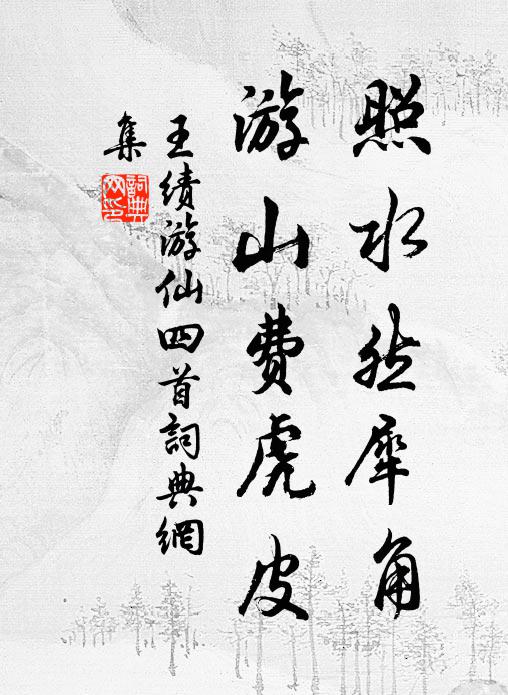 照水然犀角
游山费虎皮
王绩游仙四首詞典網
集
詞典网印